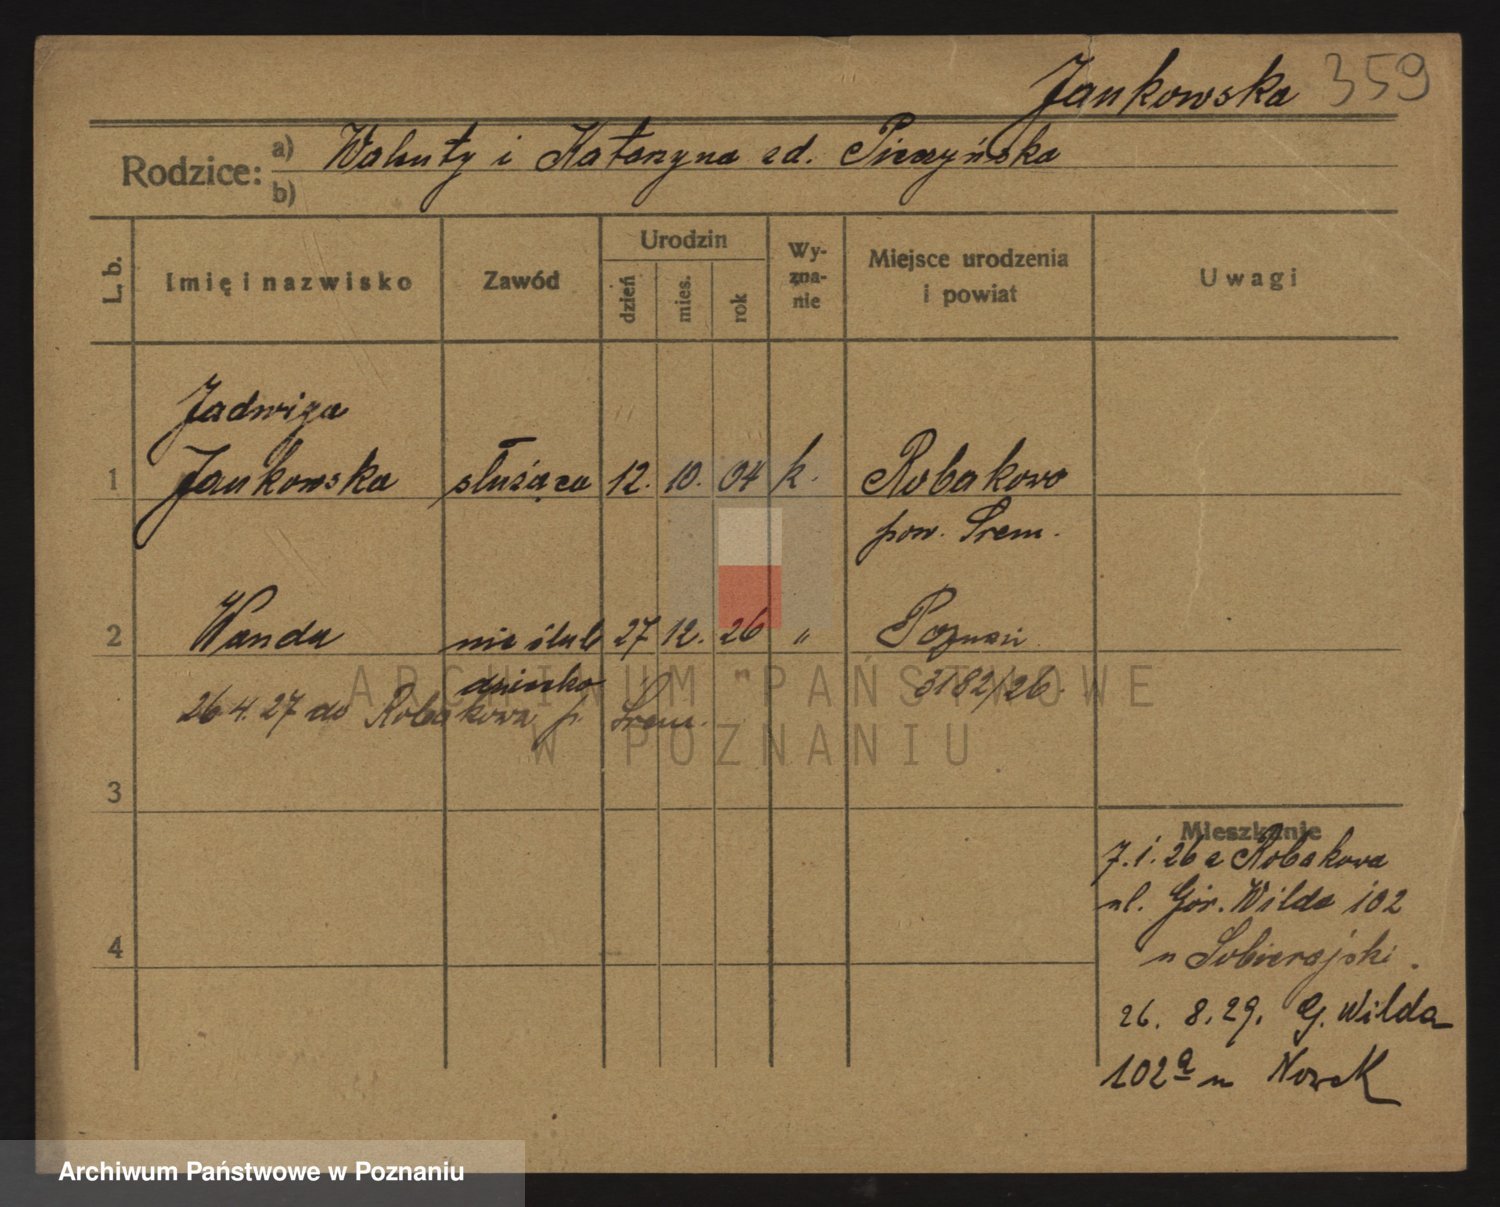 Jankowska 359
Rodzice: a) Walenty i Katarzyna zd. Pieczyńska
b)
L. b. Imię i nazwisko Zawód Urodzin dzień mies. rok Wy-zna-nie Miejsce urodzenia i powiat Uwagi
Jadwiga
1 Jankowska służąca 12. 10. 04 k. Robakowo
pow. Śrem.
2 Wanda nieślub 27 12. 26 " Poznań
dziecko " 3182/26.
26.4.27 do Robakowa p. Śrem.
3
Mieszkanie
7.1.26 z Robakowa
ul. Gór. Wilda 102
4
u Sobierajski.
26. 8.29. G. Wilda
102a u Nowak
ARCHIWUM PAŃSTWOWE
W POZNANIU
Archiwum Państwowe w Poznaniu